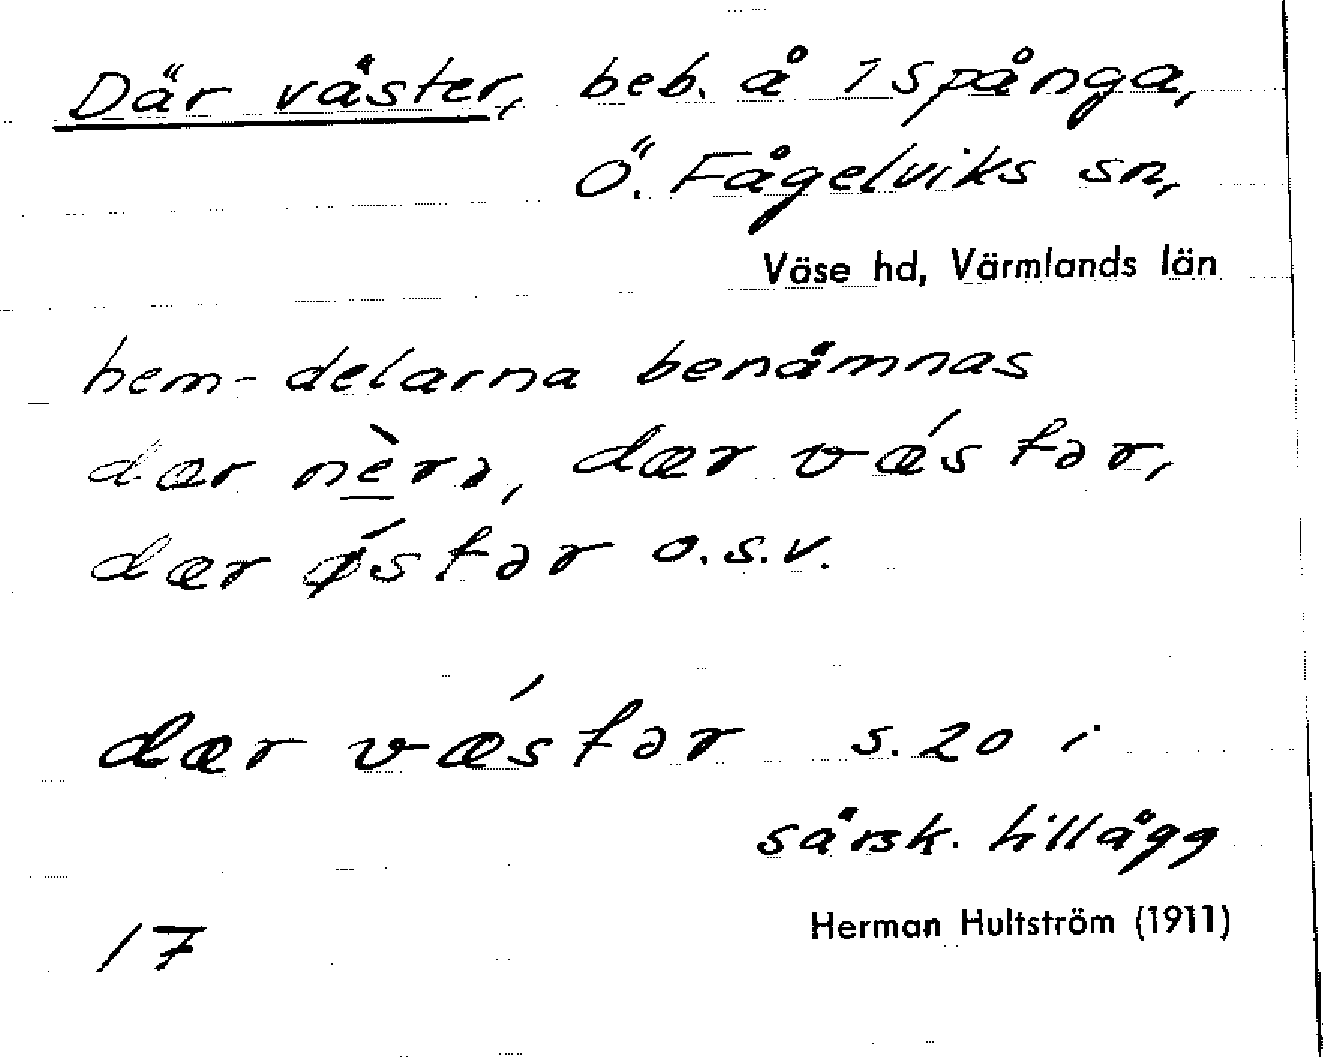 Där väster, beb. å 1 Spånga,
Ö. Fågelviks sn,
Väse hd, Värmlands län
hem-delarna benämnas
dær nèrə, dær vǽstər,
dær ǿstər o.s.v.
dær vǽstər s. 20 i
särsk. tillägg
17 Herman Hultström (1911)